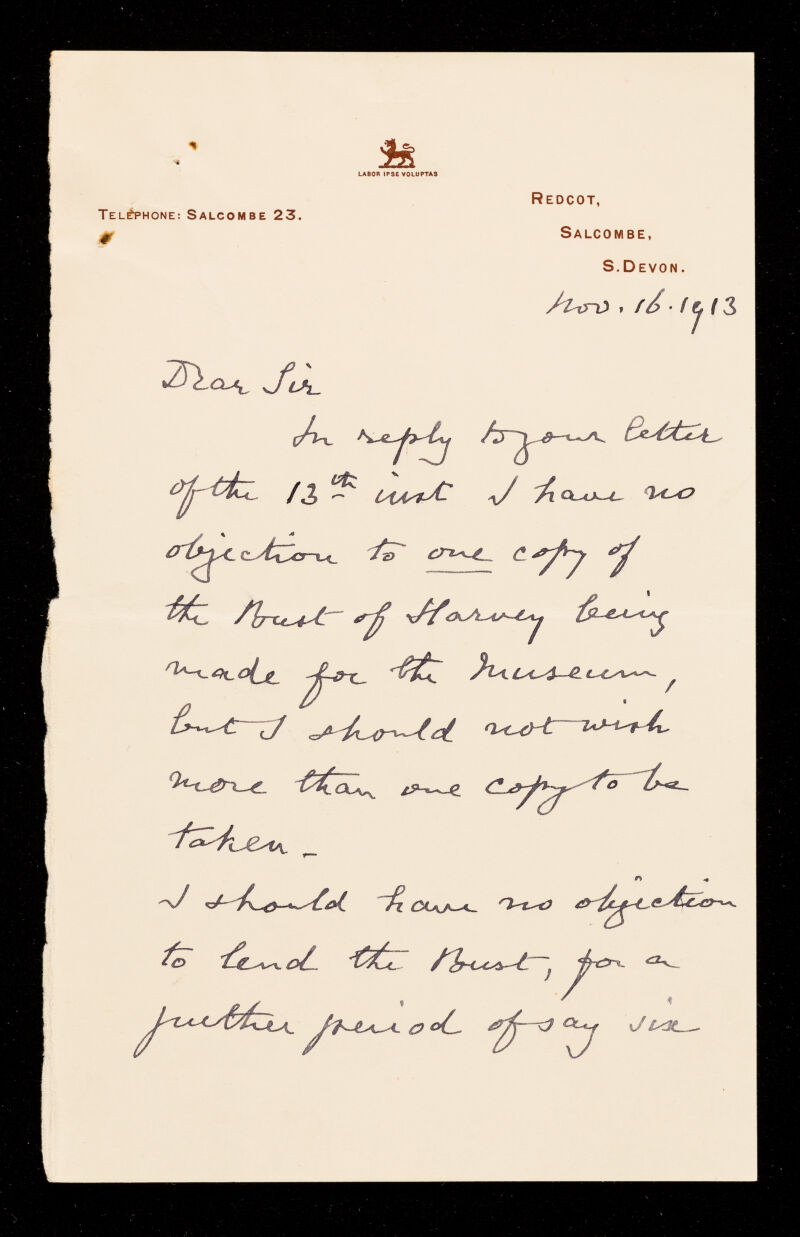 LABOR IPSE VOLUPTAS
TELEPHONE: SALCOMBE 23.
REDCOT,
SALCOMBE,
S. DEVON.
Nov. 16. 1913
Dear Sir
In reply to your letter
of the 13th inst I have no
objection to one copy of
the Bust of Harvey being
made for the Museum,
but I should not wish
more than one copy to be
taken -
I should have no objection
to lend the Bust, for a
further period of say six